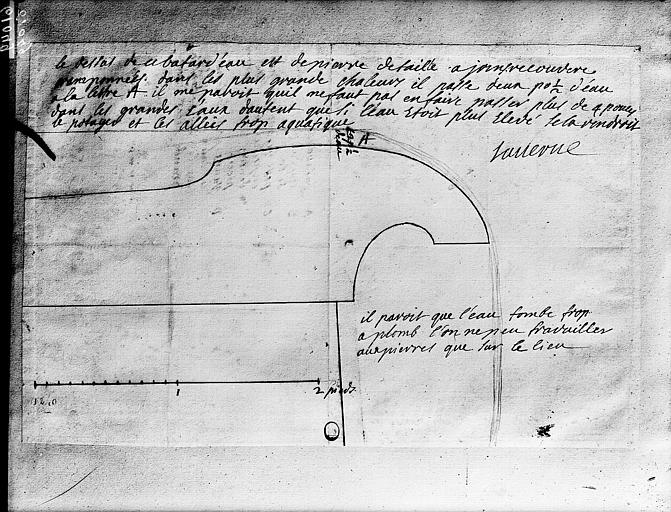 le dessus de ce batard'eau est de pierre de taille a joins recouvere
dans les plus grande chaleurs il passe deux po ½ d'eau
a la lettre A il me paroit quil ne faut pas en faire passer plus de 4 pouces
dans les grandes Eaux dautent que si l'eau etoit plus Elevé sela rendroit
le potager et les allées trop aquatique
A
il paroit que l'eau tombe trop
a plomb l'on ne peu travailler
aux pierres que sur le lieu
1
2 pieds